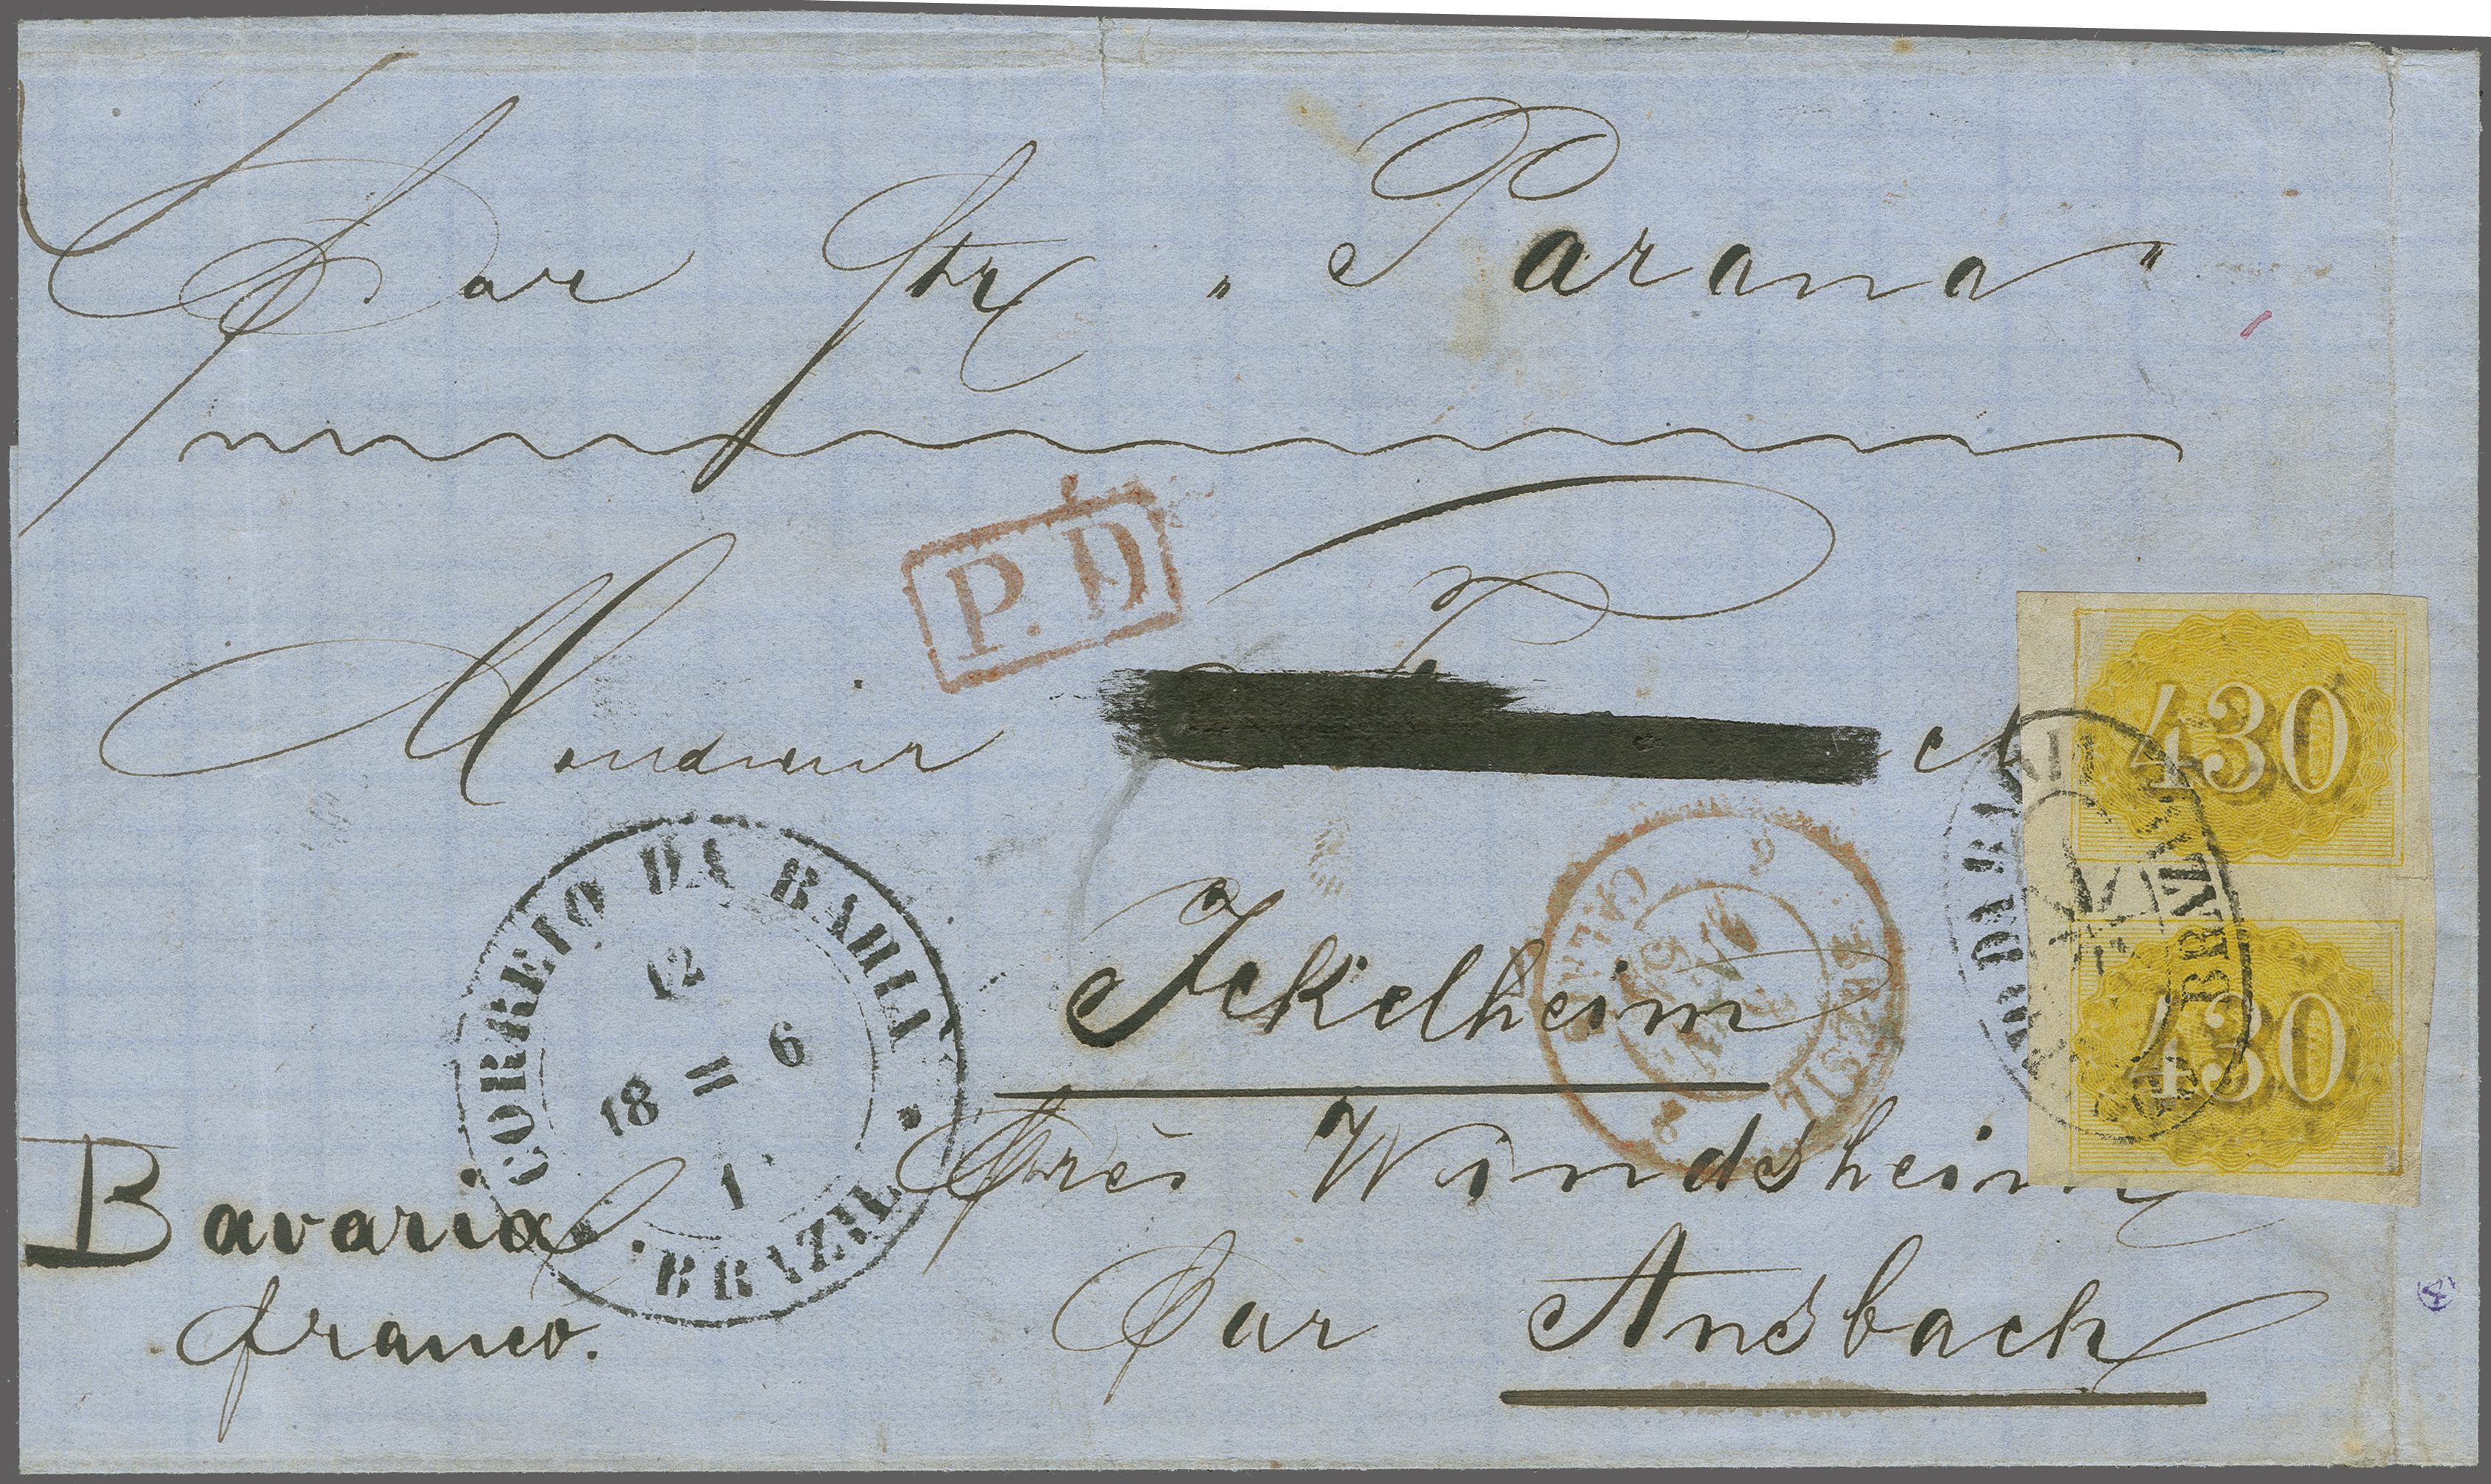 Par Str „Parana"
P.D
Monsieur
430
CORREIO DA BAHIA
12
18 = 6
1
BRAZIL
Ickelheim
DA BAHIA
BRAZIL
430
Près Windsheim
Bavaria
franco.
Par Ansbach
4